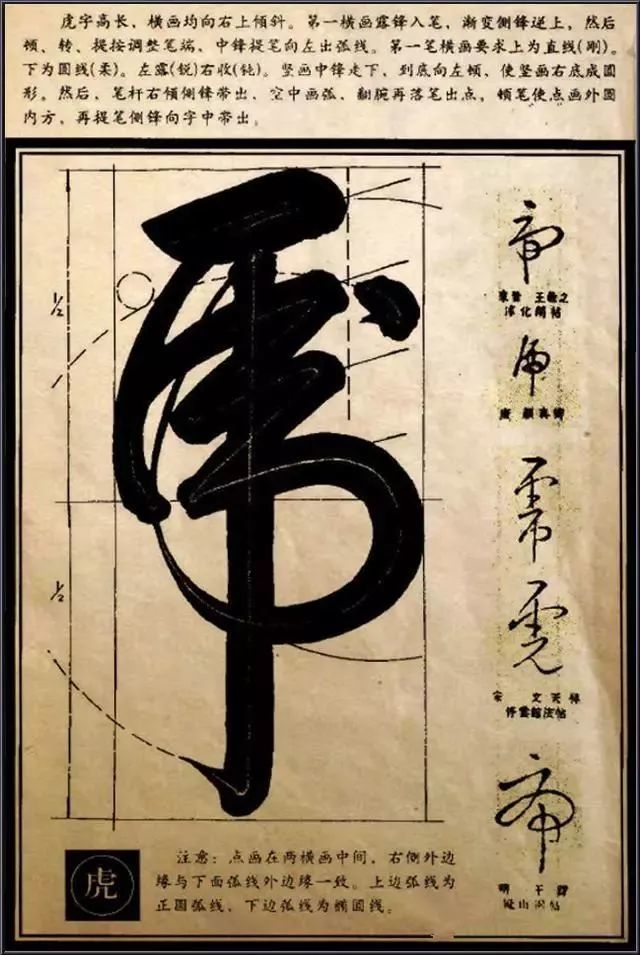 虎字高长，横画均向右上倾斜。第一横画露锋入笔，渐变侧锋逆上，然后
顿、转、提按调整笔端，中锋提笔向左出弧线。第一笔横画要求上为直线(刚)。
下为圆线(柔)。左露(锐)右收(钝)。竖画中锋走下，到底向左顿，使竖画右底成圆
形。然后，笔杆右倾侧锋带出，空中画弧，翻腕再落笔出点，顿笔使点画外圆
内方，再提笔侧锋向字中带出。
虎
1/2
1/2
東晉 王羲之
淳化閣帖
唐 顏真卿
宋 文天祥
停雲館法帖
明 王鐸
虎
注意：点画在两横画中间，右侧外边
缘与下面弧线外边缘一致。上边弧线为
正圆弧线，下边弧线为椭圆线。